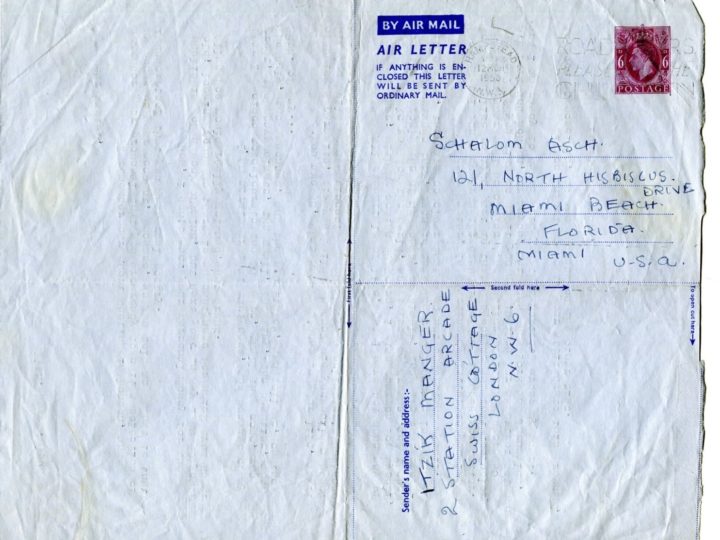 BY AIR MAIL
AIR LETTER
IF ANYTHING IS EN-
CLOSED THIS LETTER
WILL BE SENT BY
ORDINARY MAIL.
6 6
POSTAGE
SCHALOM ASCH.
121, NORTH HISBISCUS.
DRIVE
MIAMI BEACH.
FLORIDA.
MIAMI U-S.A.
First fold here
Second fold here
To open cut here
Sender's name and address:-
ITZIK MANGER
2 STATION ARCADE
SWISS COTTAGE
LONDON
N.W.6.